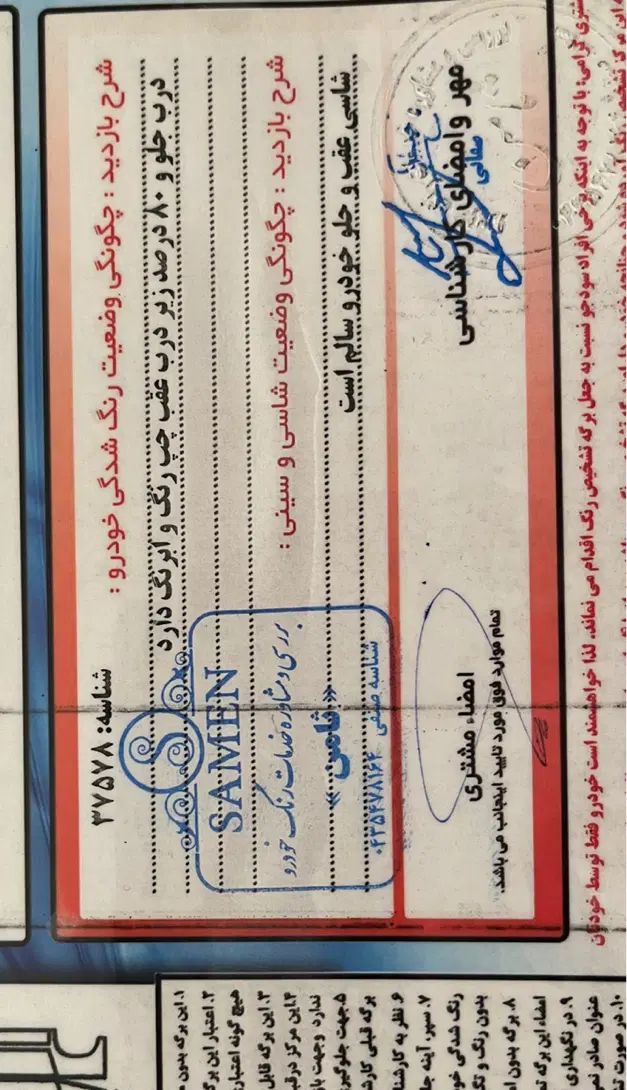 شرح بازدید : چگونگی وضعیت رنگ شدگی خودرو :
شناسه: ۳۷۵۷۸
درب جلو و ۸۰ درصد زیر درب عقب چپ رنگ و ابرنگ دارد
شرح بازدید : چگونگی وضعیت شاسی و سینی :
شاسی عقب و جلو خودرو سالم است
SAMEN
بررسی و مشاوره خدمات رنگ خودرو
« ثامن »
شناسه صنفی
مهر وامضای کارشناسی
امضاء مشتری
تمام موارد فوق مورد تایید اینجانب می باشد.
مشتری گرامی: با توجه به اینکه برخی افراد سودجو نسبت به جعل برگه تشخیص رنگ اقدام می نمائد. لذا خواهشمند است خودرو فقط توسط خودتان
۱. این برگه بدون
۲. اعتبار این
هیچ گونه اعتبار
۳. این برگه قابل
۴. این مرکز در
ندارد وجهت
۵. جهت
برگه قبلی
۶. نظر به
رنگ شدگی
۷. سپر، آینه
بدون رنگ و
۸. برگه بدون
امضاء این برگه
۹. در نگهداری
عنوان صادر
۱۰. در صورت